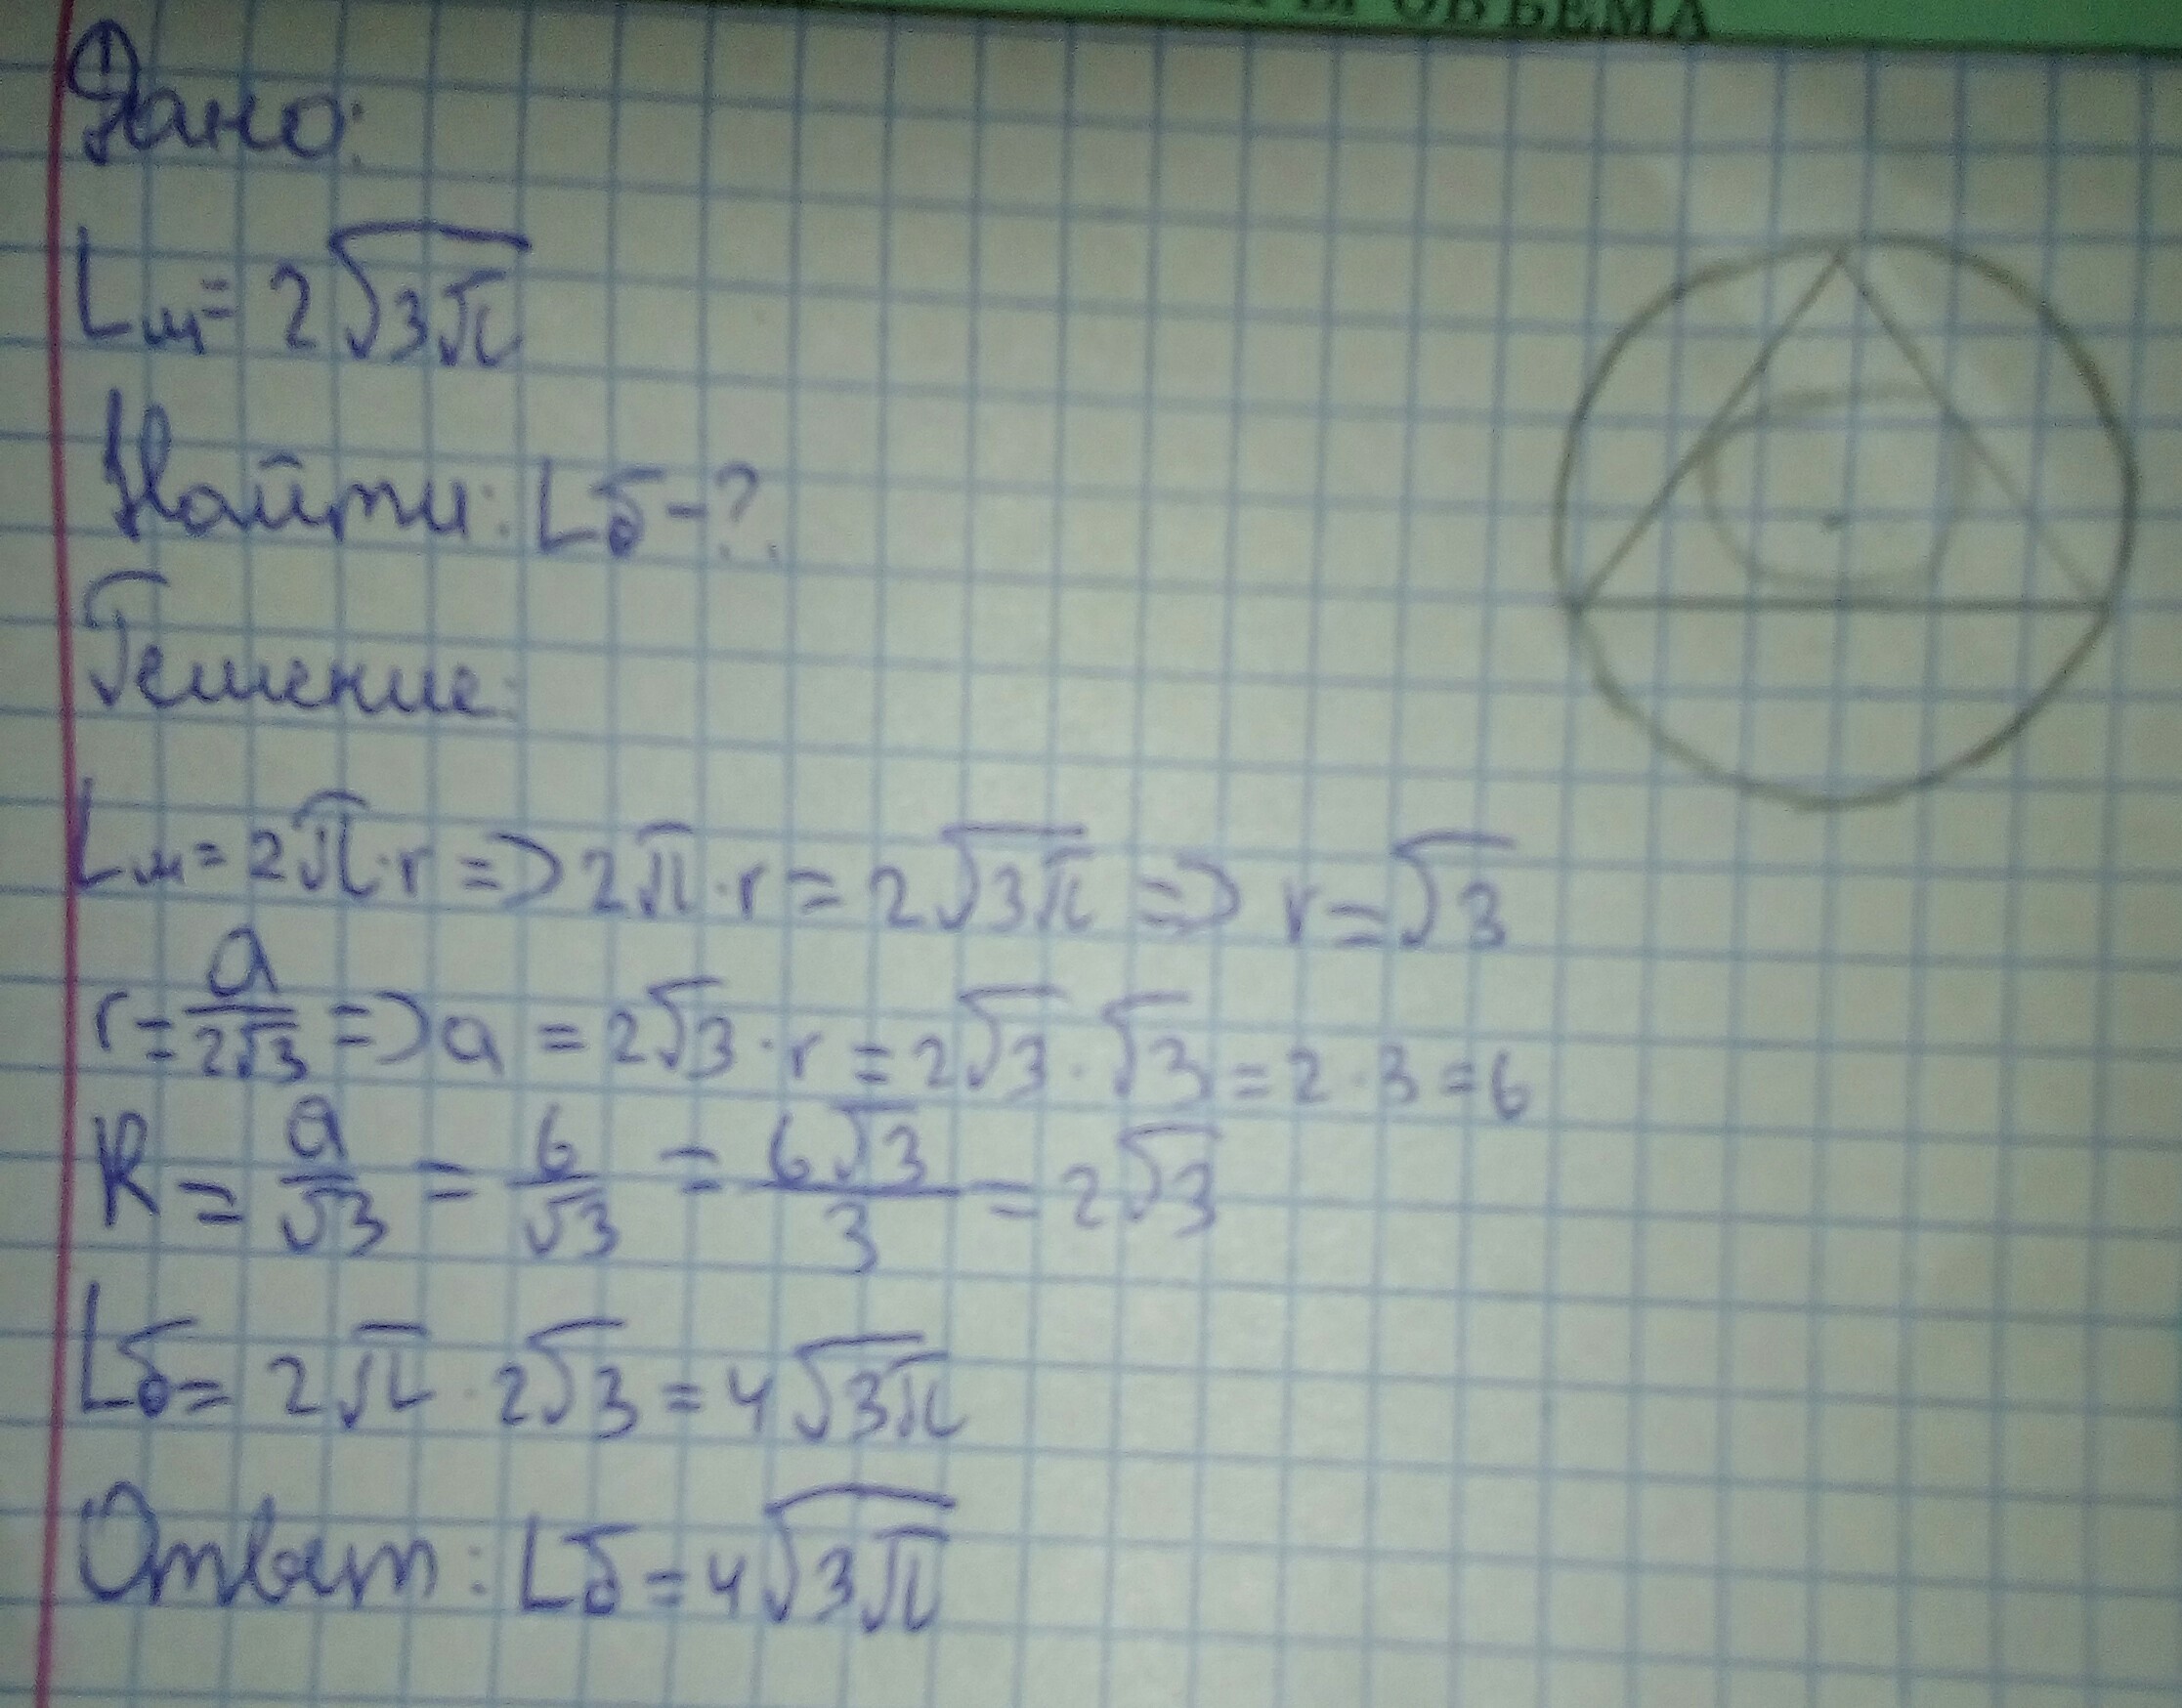 РЫ ОБЪЕМА
Дано:
Lм = 2√3π
Найти: Lб - ?
Решение:
Lм = 2π·r => 2π·r = 2√3π => r = √3
r = a/2√3 => a = 2√3·r = 2√3·√3 = 2·3 = 6
R = a/√3 = 6/√3 = 6√3/3 = 2√3
Lб = 2π·2√3 = 4√3π
Ответ: Lб = 4√3π